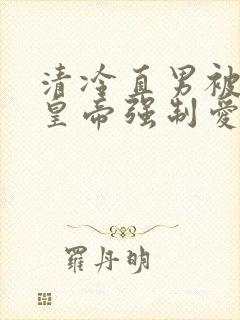 清冷直男被
皇帝强制爱
羅丹明